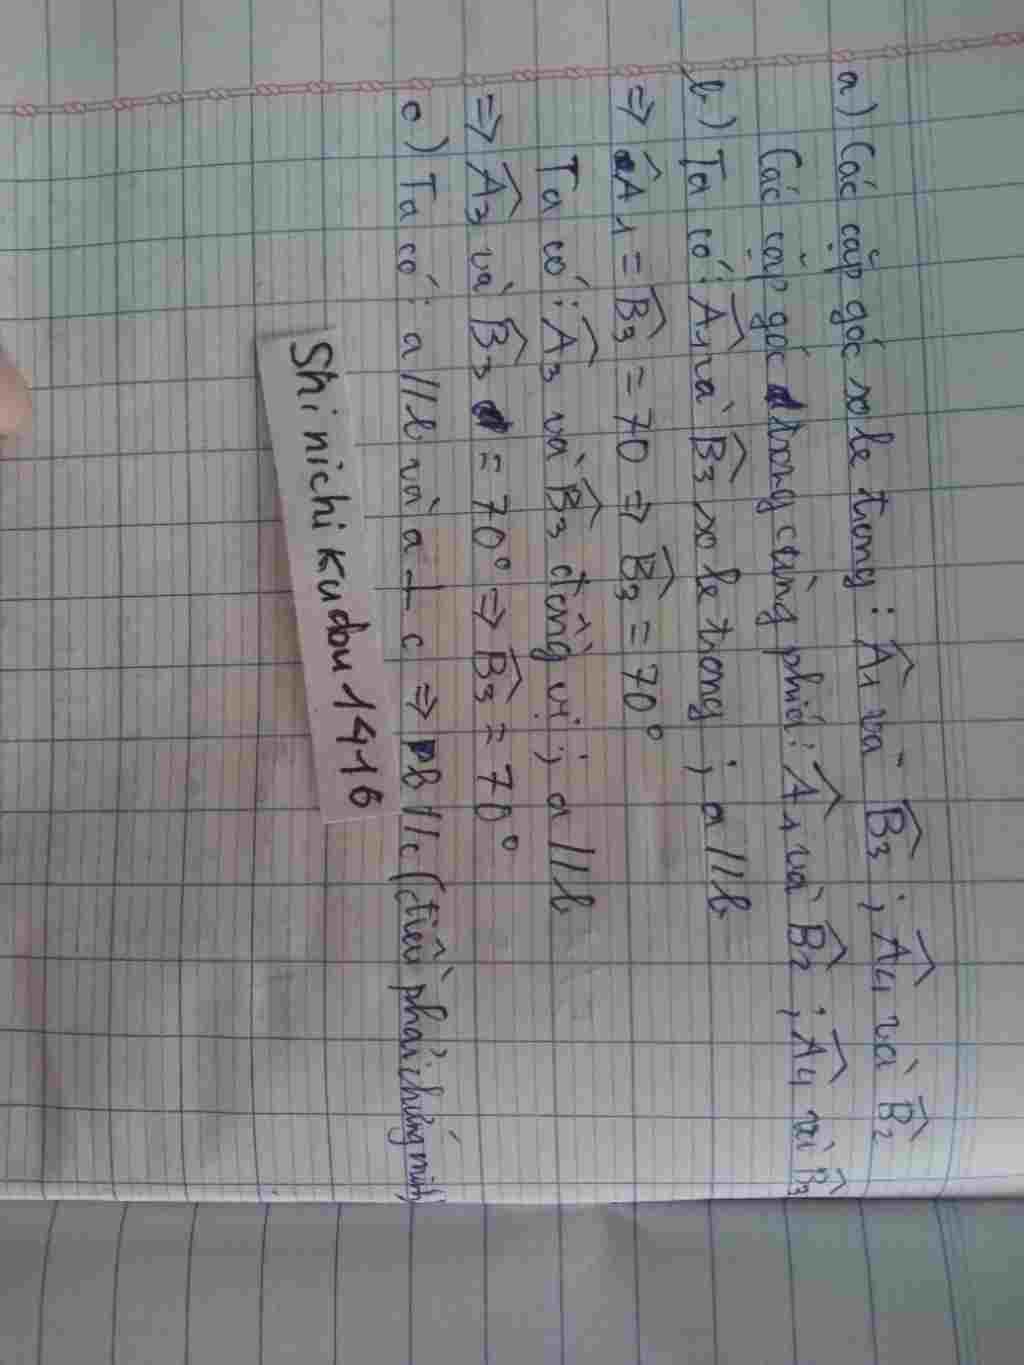 a) Các cặp góc so le trong: Â1 và B̂3; Â4 và B̂2
Các cặp góc trong cùng phía: Â1 và B̂2; Â4 và B̂3
b) Ta có: Â1 và B̂3 so le trong; a//b
=> Â1 = B̂3 = 70 => B̂3 = 70°
Ta có: Â3 và B̂3 đồng vị; a//b
=> Â3 và B̂3 = 70° => B̂3 = 70°
c) Ta có: a//b và a ⊥ c => b//c (điều phải chứng minh)
Shinichi Kudou 1416